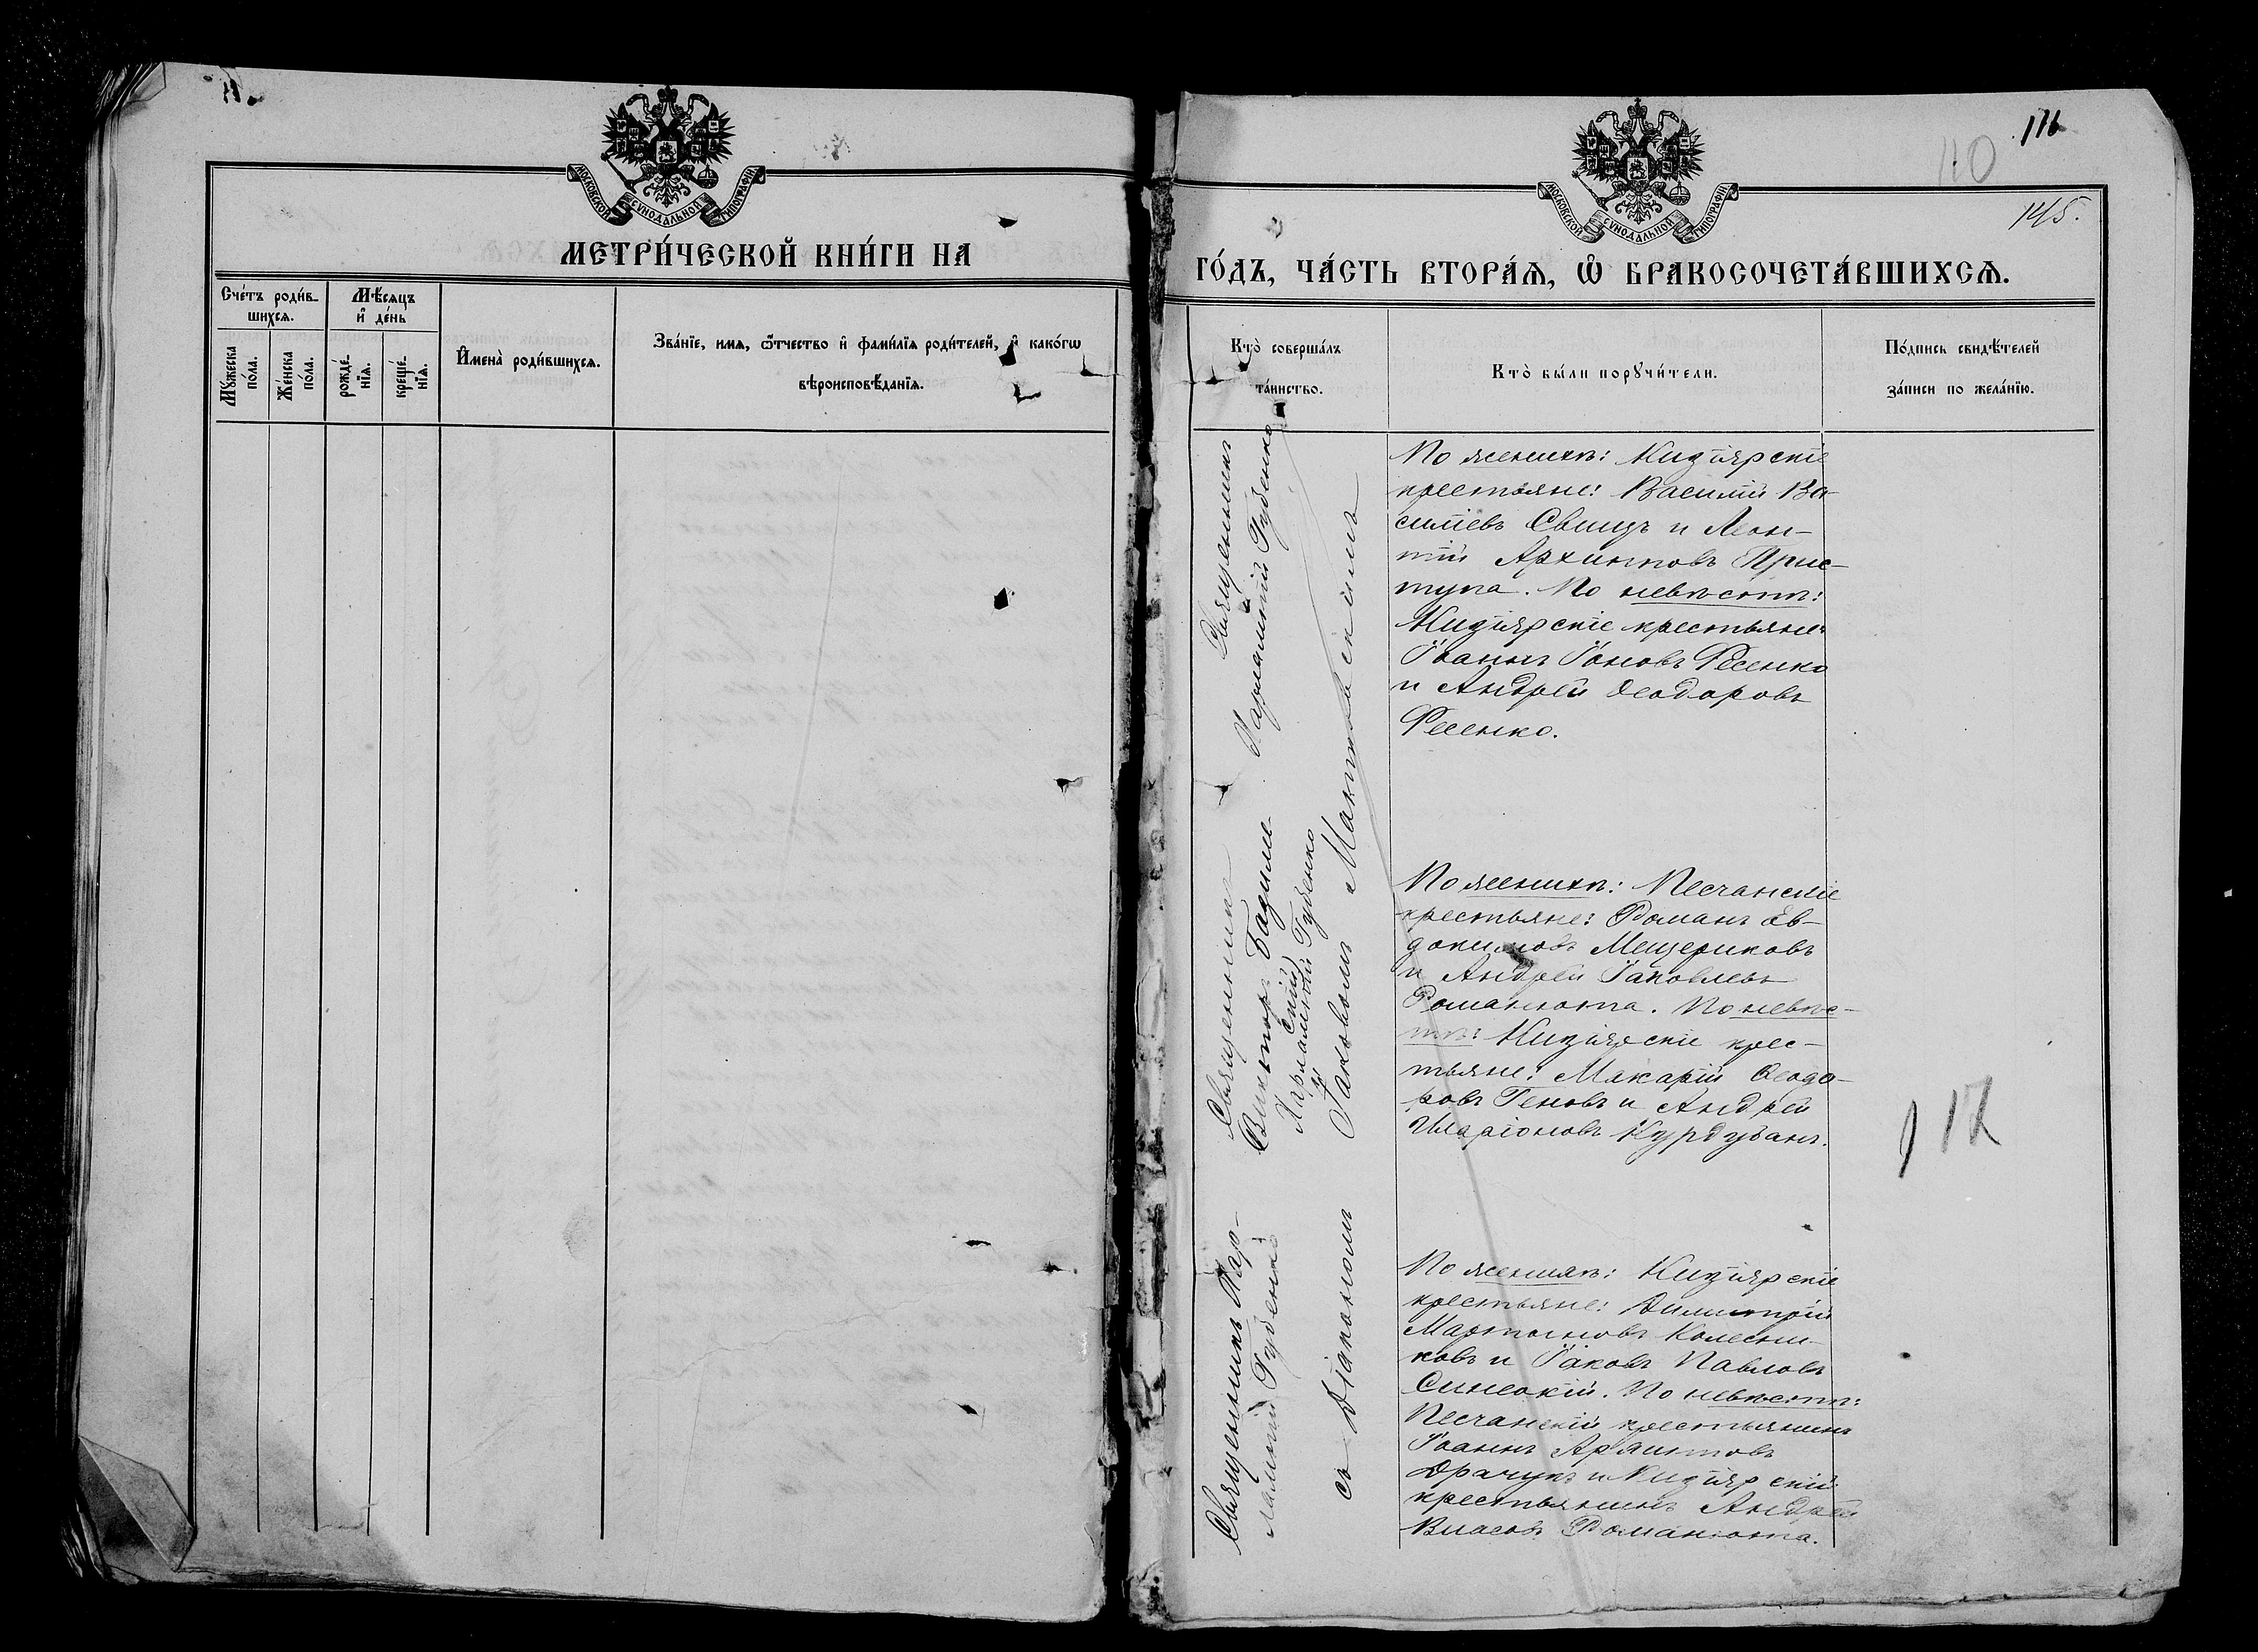 МОСКОВСКОЙ СУНОДАЛЬНОЙ ТИПОГРАФІИ
МЕТРИ́ЧЕСКОЙ КНИ́ГИ НА
Сче́тъ роди́в-
шихсѧ.
Мѣ́сѧцъ
и҆ де́нь
Мꙋ́жеска
по́ла.
Же́нска
по́ла.
рожде́-
нїѧ.
креще́-
нїѧ.
И҆мена̀ роди́вшихсѧ.
Зва́нїе, имѧ, ѻ҆́тчество и҆ фами́лїѧ роди́телей, и҆ како́гѡ
вѣроисповѣ́данїѧ.
116
110
МОСКОВСКОЙ СУНОДАЛЬНОЙ ТИПОГРАФІИ
145.
ГО́ДЪ, ЧА́СТЬ ВТОРА́Ѧ, Ѡ҆ БРАКОСОЧЕТА́ВШИХСѦ.
Кто̀ соверша́лъ
та́инство.
Кто̀ бы́ли порꙋчи́тели.
По́дпись свидѣ́телей
за́писи по жела́нїю.
Священникъ
Харлампій Губенко
По женихѣ: Кизіярскіе
крестьяне: Василій Ва-
силіевъ Свищъ и Леон-
тій Архиповъ Прис-
тупа. По невѣстѣ:
Кизіярскіе крестьяне:
Іоаннъ Іоновъ Фесенко
и Андрей Ѳеодоровъ
Фесенко.
Священникъ
Викторъ Базиле-
скій
Харлампій Губенко
По женихѣ: Песчанскіе
крестьяне: Романъ Ев-
докимовъ Мещериковъ
и Андрей Іаковлевъ
Романюта. По невѣс-
тѣ: Кизіярскіе крес-
тьяне: Макарій Ѳеодо-
ровъ Геновъ и Андрей
Иларіоновъ Курдубанъ.
117
Священникъ Хар-
лампій Губенко
съ Діакономъ Іаковомъ
По женихѣ: Кизіярскіе
крестьяне: Димитрій
Мартыновъ Колесни-
ковъ и Іаковъ Павловъ
Синеокій. По невѣстѣ:
Песчанскій крестьянинъ
Іоаннъ
Драчукъ и Кизіярскій
крестьянинъ Андрей
Власовъ Романюта.